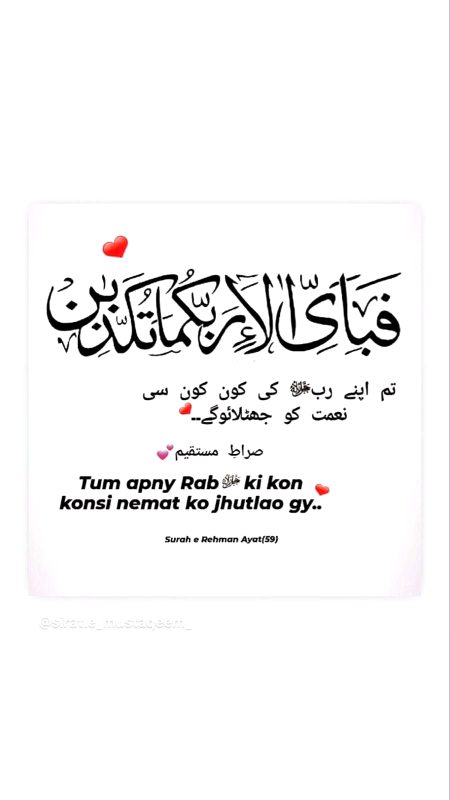 فَبِأَيِّ آلَاءِ رَبِّكُمَا تُكَذِّبَانِ
تم اپنے ربﷻ کی کون کون سی
نعمت کو جھٹلائوگے۔۔
صراطِ مستقیم
Tum apny Rabﷻ ki kon
konsi nemat ko jhutlao gy..
Surah e Rehman Ayat(59)
@sirat.e_mustaqeem_